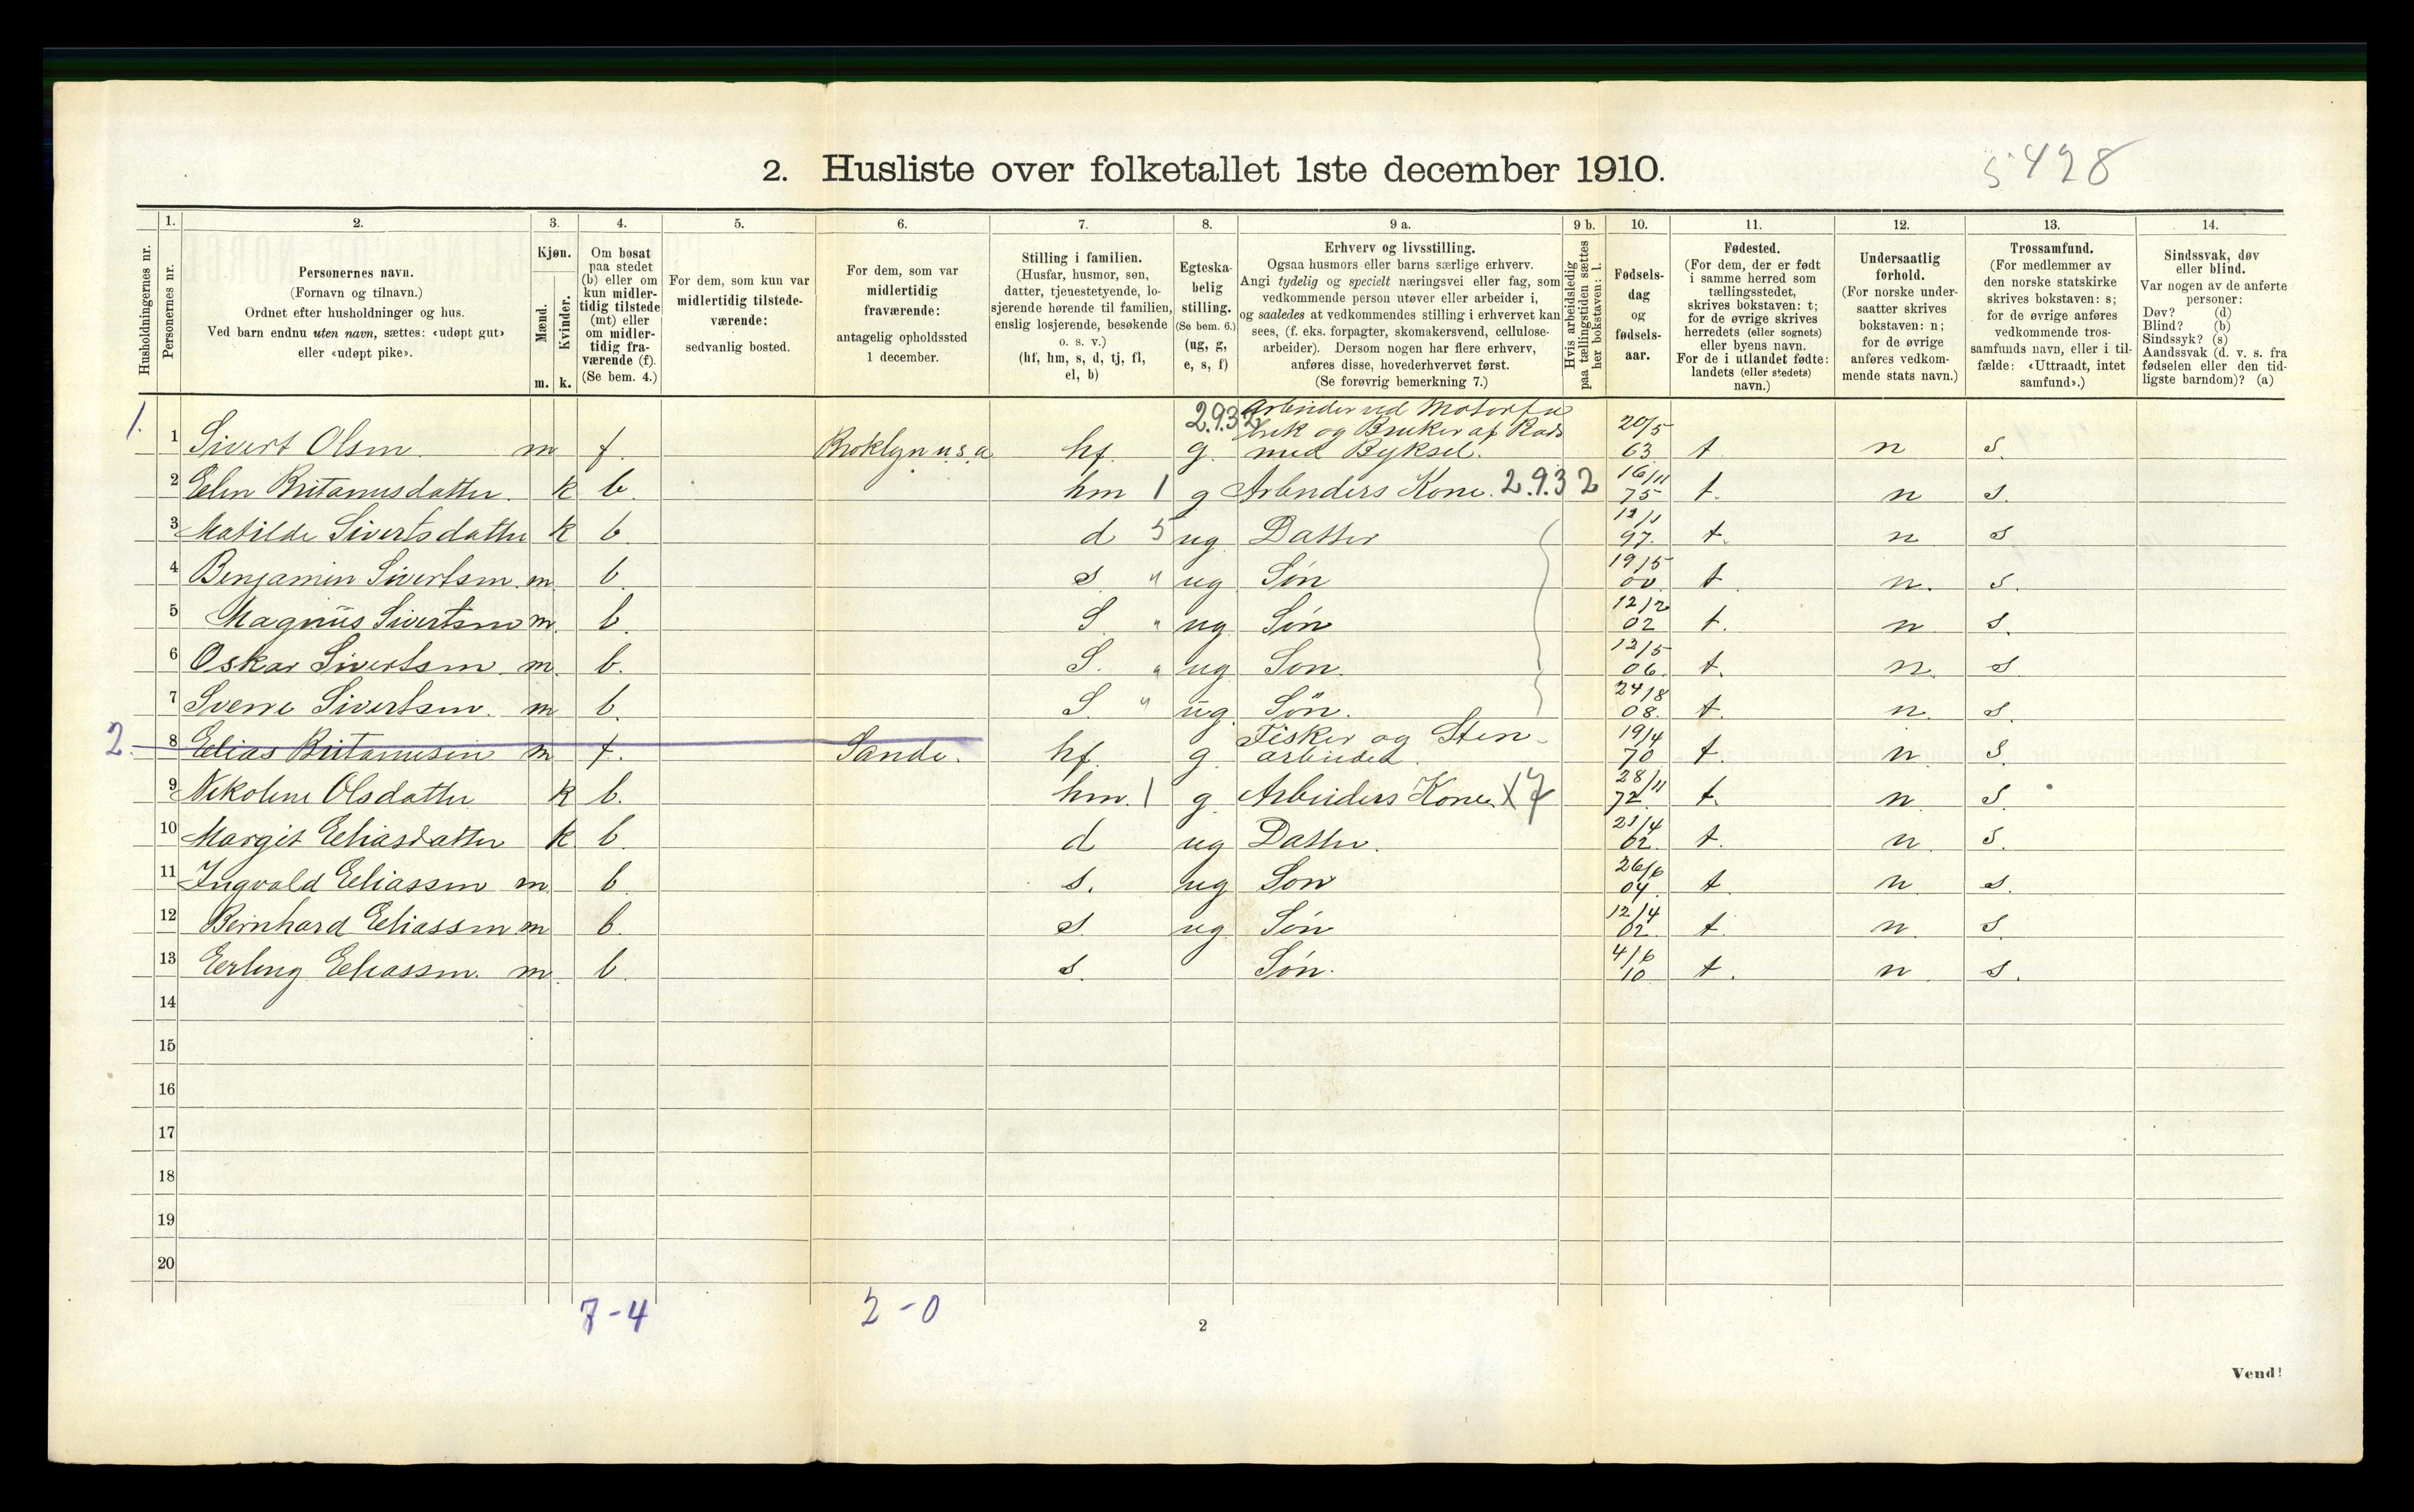 2. Husliste over folketallet 1ste december 1910.
5428
1. 2. 3. 4. 5. 6. 7. 8. 9 a. 9 b. 10. 11. 12. 13. 14.
Husholdningernes nr.
Personernes nr.
Personernes navn.
(Fornavn og tilnavn.)
Ordnet efter husholdninger og hus.
Ved barn endnu uten navn, sættes: «udøpt gut»
eller «udøpt pike».
Kjøn.
Mænd.
Kvinder.
m. k.
Om bosat
paa stedet
(b) eller om
kun midler-
tidig tilstede
(mt) eller
om midler-
tidig fra-
værende (f).
(Se bem. 4.)
For dem, som kun var
midlertidig tilstede-
værende:
sedvanlig bosted.
For dem, som var
midlertidig
fraværende:
antagelig opholdssted
1 december.
Stilling i familien.
(Husfar, husmor, søn,
datter, tjenestetyende, lo-
sjerende hørende til familien,
enslig losjerende, besøkende
o. s. v.)
(hf, hm, s, d, tj, fl,
el, b)
Egteska-
belig
stilling.
(Se bem. 6.)
(ug, g,
e, s, f)
Erhverv og livsstilling.
Ogsaa husmors eller barns særlige erhverv.
Angi tydelig og specielt næringsvei eller fag, som
vedkommende person utøver eller arbeider i,
og saaledes at vedkommendes stilling i erhvervet kan
sees, (f. eks. forpagter, skomakersvend, cellulose-
arbeider). Dersom nogen har flere erhverv,
anføres disse, hovederhvervet først.
(Se forøvrig bemerkning 7.)
Hvis arbeidsledig
paa tællingstiden sættes
her bokstaven: l.
Fødsels-
dag
og
fødsels-
aar.
Fødested.
(For dem, der er født
i samme herred som
tællingsstedet,
skrives bokstaven: t;
for de øvrige skrives
herredets (eller sognets)
eller byens navn.
For de i utlandet fødte:
landets (eller stedets)
navn.)
Undersaatlig
forhold.
(For norske under-
saatter skrives
bokstaven: n;
for de øvrige
anføres vedkom-
mende stats navn.)
Trossamfund.
(For medlemmer av
den norske statskirke
skrives bokstaven: s;
for de øvrige anføres
vedkommende tros-
samfunds navn, eller i til-
fælde: «Uttraadt, intet
samfund».)
Sindssvak, døv
eller blind.
Var nogen av de anførte
personer:
Døv? (d)
Blind? (b)
Sindssyk? (s)
Aandssvak (d. v. s. fra
fødselen eller den tid-
ligste barndom)? (a)
2.9.32 Arbeider ved Motorfa
brik og Bruker af Rads
1. 1 Sivert Olsen m f. Broklyn u.s.a hf. g. med Byksel. 20/5 63 t n s.
2 Elen Britanusdatter. k b. hm 1 g Arbeiders Kone. 2.9.32 16/11 75 t. n s.
3 Matilde Sivertsdatter k b. d 5 ug Datter 12/1 97. t. n s
4 Benjamin Sivertsen. m. b. s " ug Søn 19/5 00 t n. s.
5 Magnus Sivertsen m. b. S. " ug Søn 12/2 02 t. n s.
6 Oskar Sivertsen m. b. S. " ug Søn. 12/5 06. t. n. s
7 Sverre Sivertsen. m b. S. " ug. Søn. 24/8 08. t. n. s.
Fisker og Sten-
2. 8 Elias Britanusen m f. Sande. hf. g. arbeider. 19/4 70 t. n. s.
9 Nikoline Olsdatter k b. hm. 1 g Arbeiders Kone. X7 28/11 72 t. n. s.
10 Margit Eliasdatter k b. d ug Datter. 21/4 02. t. n. s.
11 Ingvald Eliassen m. b. s. ug Søn 26/6 04. t. n. s.
12 Bernhard Eliassen m b. s. ug. Søn 12/4 02. t. n. s
13 Erling Eliassen. m. b. s. Søn. 4/6 10 t. n s.
14
15
16
17
18
19
20
7-4 2-0
2
Vend!